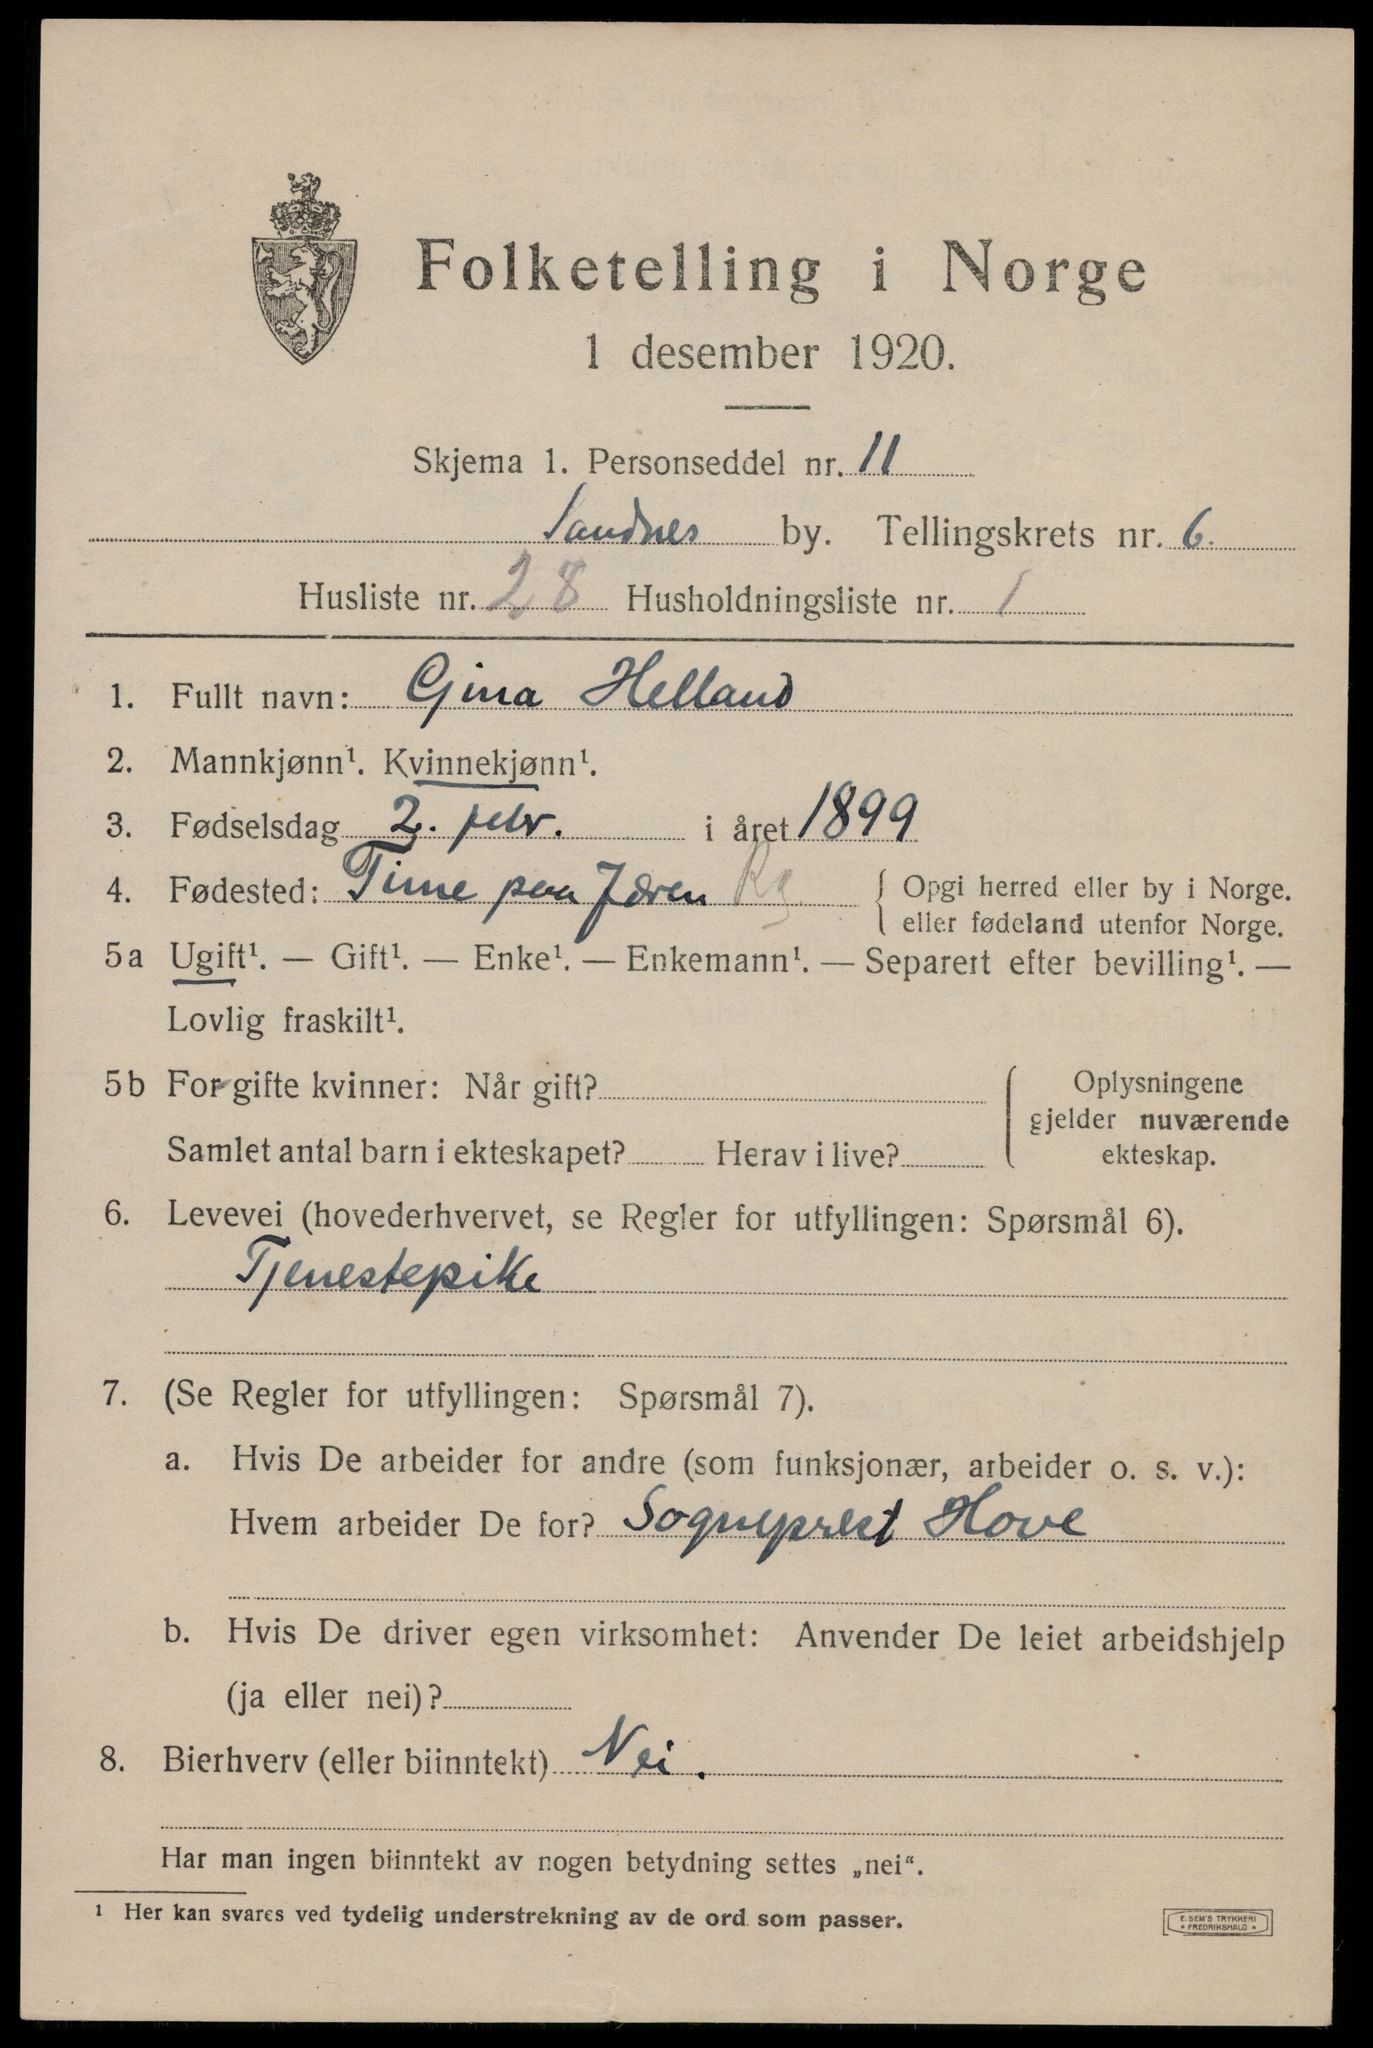 Folketelling i Norge
1 desember 1920.
Skjema 1. Personseddel nr. 11
Sandnes by. Tellingskrets nr. 6.
Husliste nr. 28 Husholdningsliste nr. 1
1. Fullt navn: Gina Helland
2. Mannkjønn¹. Kvinnekjønn¹.
3. Fødselsdag 2. febr. i året 1899
4. Fødested: Time paa Jæren Rg. { Opgi herred eller by i Norge.
eller fødeland utenfor Norge.
5a Ugift¹. — Gift¹. — Enke¹. — Enkemann¹. — Separert efter bevilling¹. —
Lovlig fraskilt¹.
5b For gifte kvinner: Når gift? Oplysningene
gjelder nuværende
Samlet antal barn i ekteskapet? Herav i live? ekteskap.
6. Levevei (hovederhvervet, se Regler for utfyllingen: Spørsmål 6).
Tjenestepike
7. (Se Regler for utfyllingen: Spørsmål 7).
a. Hvis De arbeider for andre (som funksjonær, arbeider o. s. v.):
Hvem arbeider De for? Sogneprest Hove
b. Hvis De driver egen virksomhet: Anvender De leiet arbeidshjelp
(ja eller nei)?
8. Bierhverv (eller biinntekt) Nei.
Har man ingen biinntekt av nogen betydning settes „nei“.
¹ Her kan svares ved tydelig understrekning av de ord som passer.
E. SEM'S TRYKKERI
• FREDRIKSHALD •